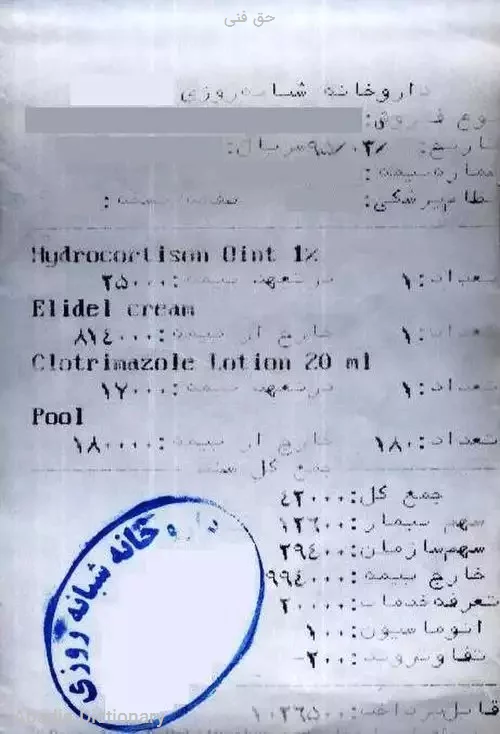 حق فنی
داروخانه شبانه‌روزی
نوع فروش:
تاریخ: ۹۵/۰۲/ ارسال:
شماره‌بیمه:
نظام‌پزشکی: صفحه نسخه:
Hydrocortison Oint 1%
تعداد:۱ در تعهد بیمه:۲۵۰۰۰
Elidel cream
تعداد:۱ خارج از بیمه:۸۱٤۰۰۰
Clotrimazole Lotion 20 ml
تعداد:۱ در تعهد بیمه:۱۷۰۰۰
Pool
تعداد:۱۸۰ خارج از بیمه:۱۸۰۰۰۰
جمع کل نسخه
جمع کل:٤۲۰۰۰
سهم بیمار:۱۲٦۰۰
سهم‌سازمان:۲۹٤۰۰
خارج بیمه:۹۹٤۰۰۰
تعرفه‌خدمات:۲۰۰۰۰
اتوماسیون:۱۰۰
تفاوت‌روند:۲۰۰-
قابل‌پرداخت:۱۰۲٦۵۰۰
داروخانه شبانه روزی
Dictionary